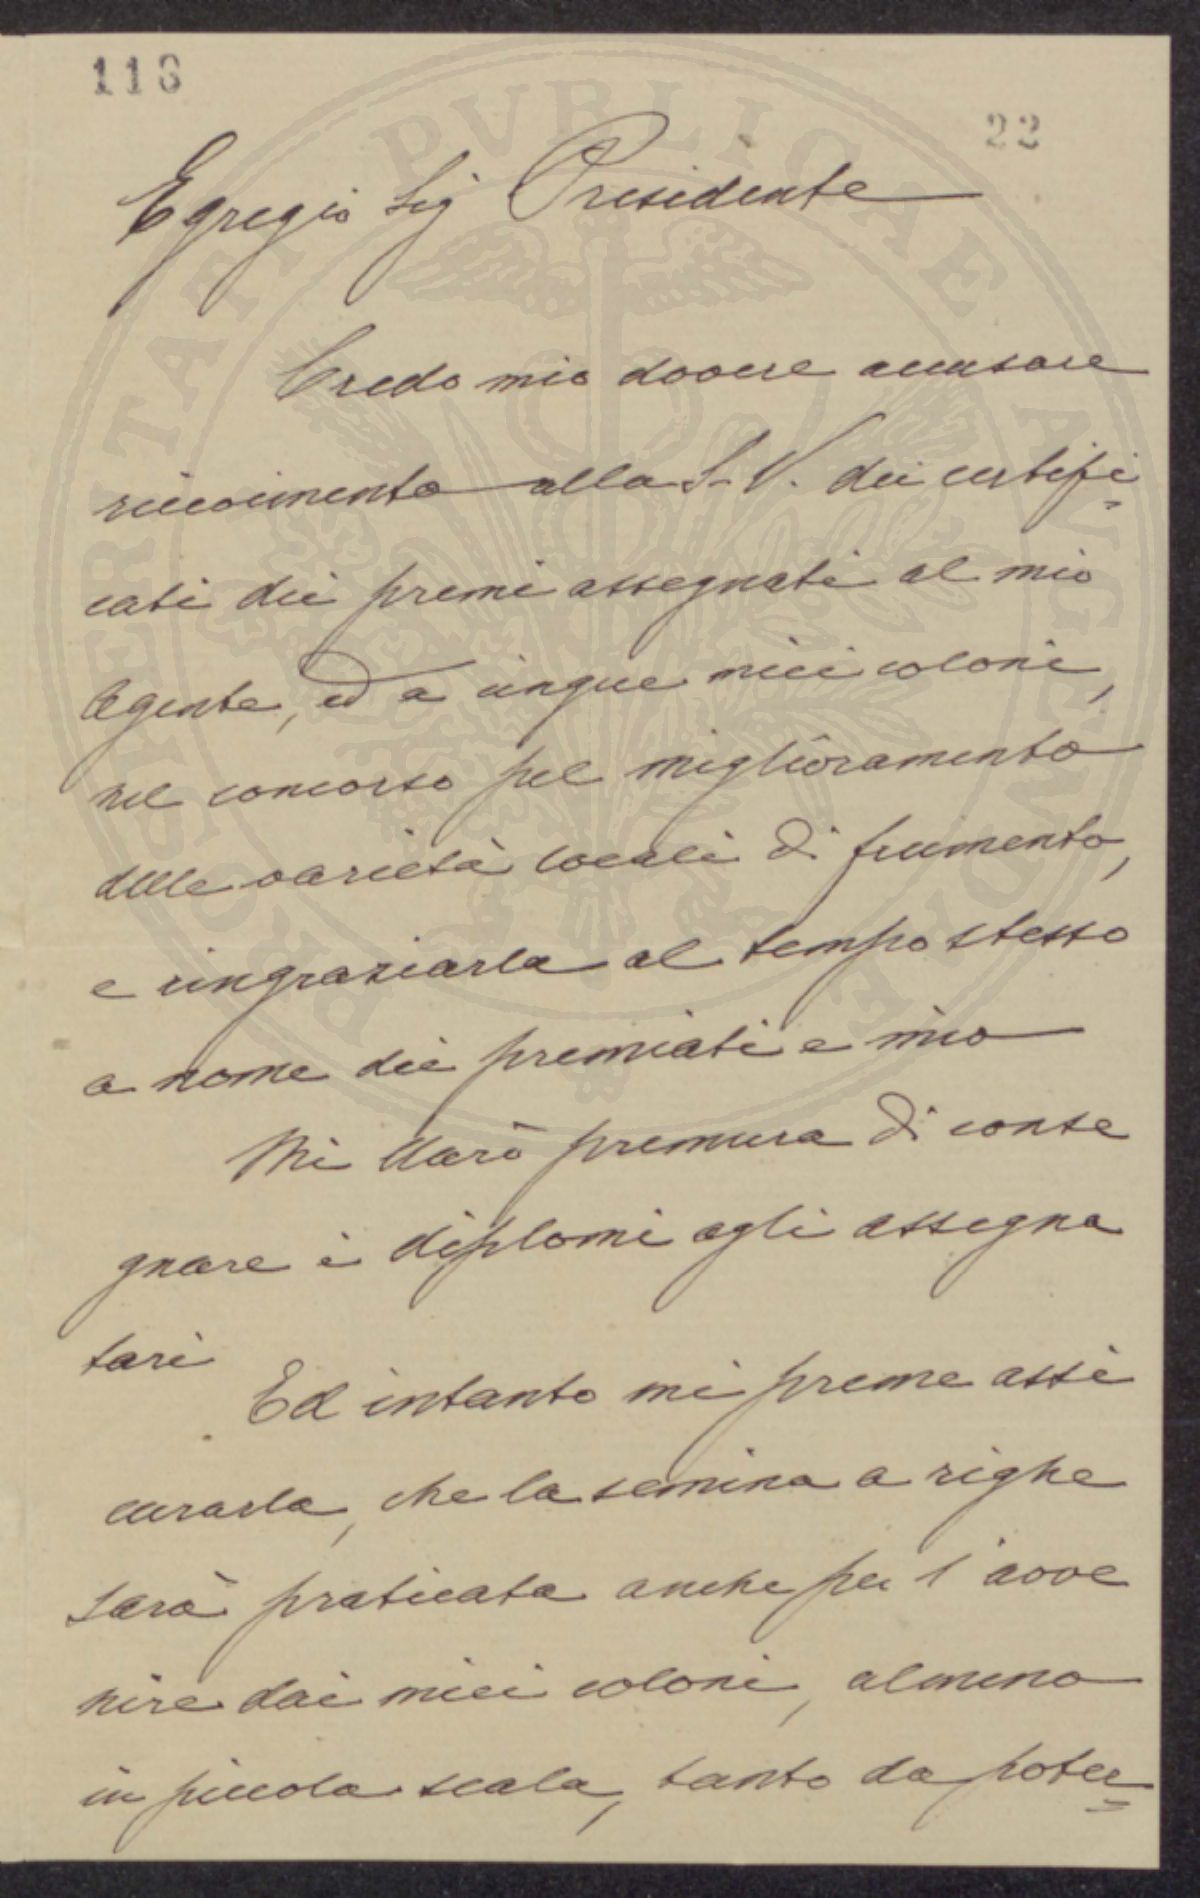 116
22
Egregio Sig Presidente
Credo mio dovere accusare
ricevimento alla S. V. dei certifi=
cati dei premi assegnati al mio
Agente, ed a cinque miei coloni,
nel concorso pel miglioramento
delle varietà locali di frumento,
e ringraziarla al tempo stesso
a nome dei premiati e mio
Mi darò premura di conse
gnare i diplomi agli assegna
tari
Ed intanto mi preme assi
curarla, che la semina a righe
sarà praticata anche per l'avve
nire dai miei coloni, almeno
in piccola scala, tanto da poter=
PROSPERITATI PVBLICAE AVGENDAE